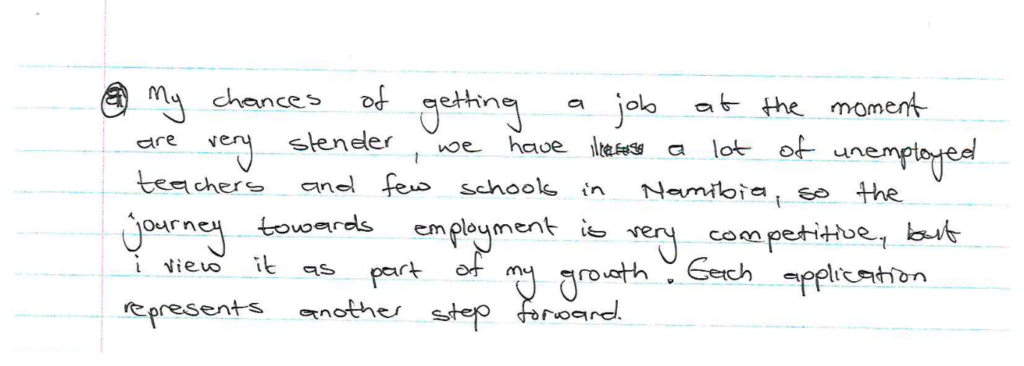 My chances of getting a job at the moment
are very slender, we have a lot of unemployed
teachers and few schools in Namibia, so the
journey towards employment is very competitive, but
i view it as part of my growth. Each application
represents another step forward.